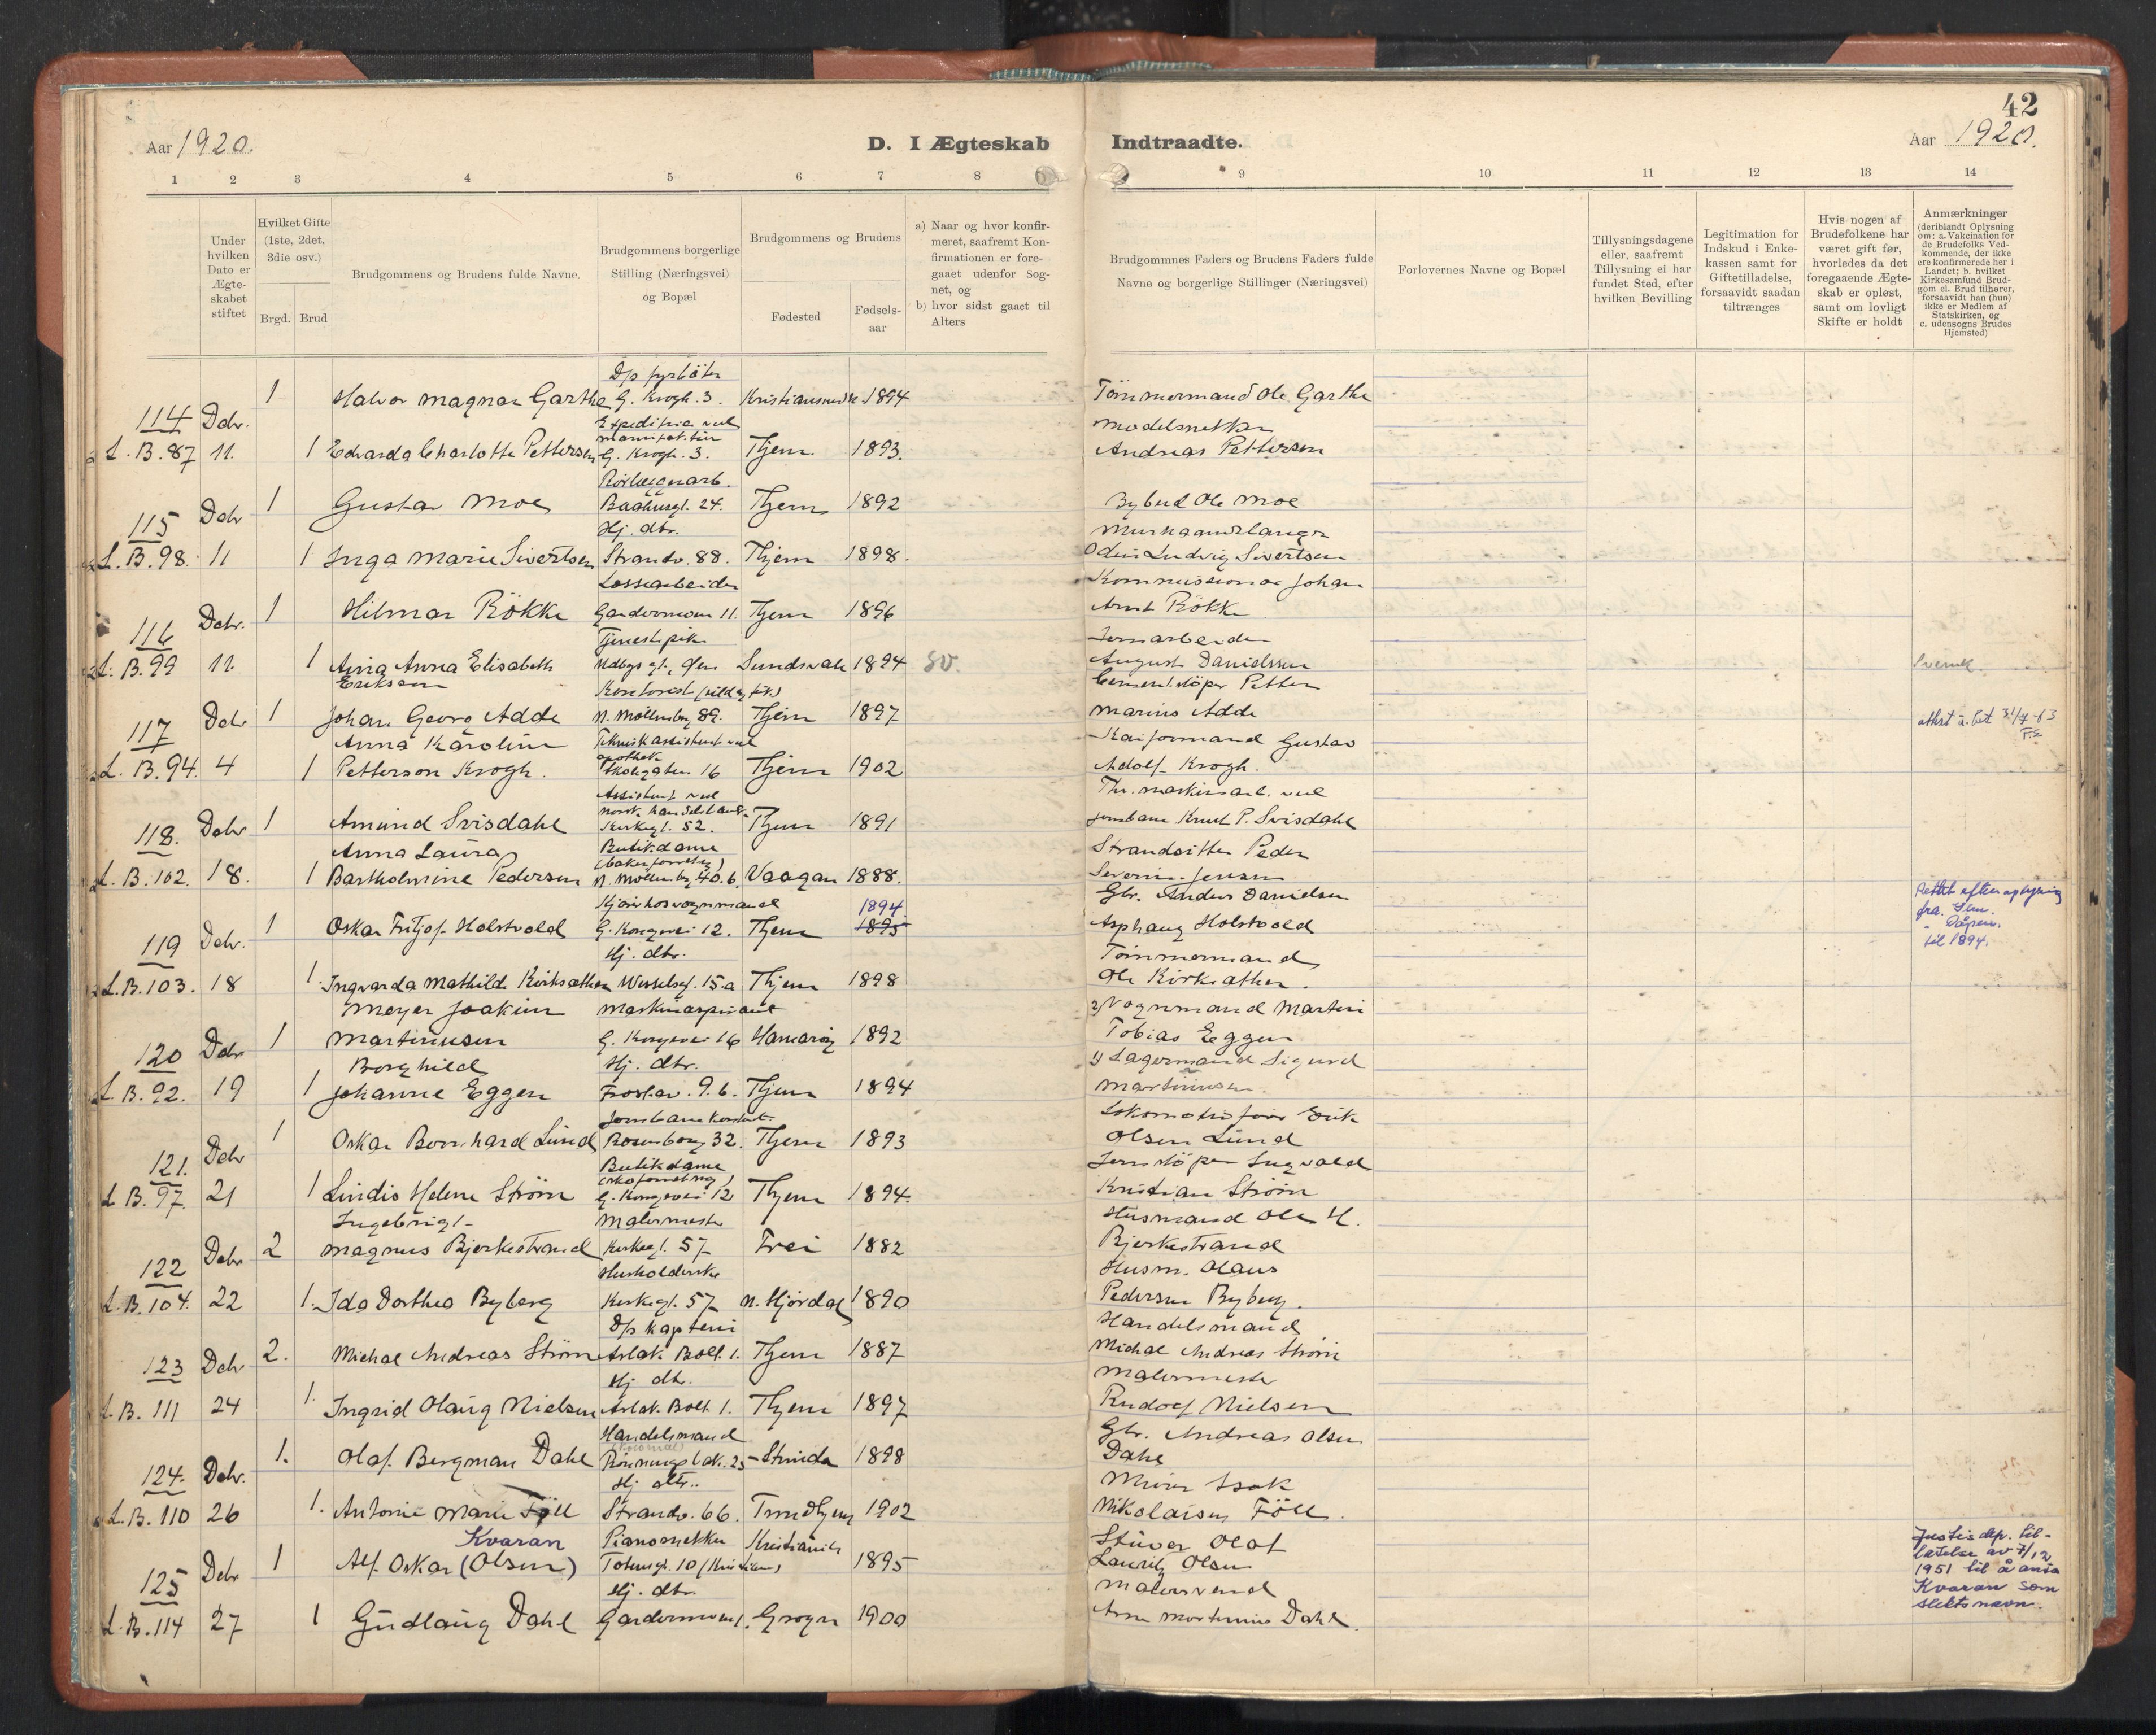 42
Aar 1920.
D. I Ægteskab
Indtraadte.
Aar 1920.
1 2 3 4 5 6 7 8 9 10 11 12 13 14
Under hvilken Dato er Ægte-skabet stiftet
Hvilket Gifte (1ste, 2det, 3die osv.)
Brgd. Brud
Brudgommens og Brudens fulde Navne.
Brudgommens borgerlige Stilling (Næringsvei) og Bopæl
Brudgommens og Brudens
Fødested
Fødsels-aar
a) Naar og hvor konfir-meret, saafremt Kon-firmationen er fore-gaaet udenfor Sog-net, og
b) hvor sidst gaaet til Alters
Brudgommnes Faders og Brudens Faders fulde Navne og borgerlige Stillinger (Næringsvei)
Forlovernes Navne og Bopæl
Tillysningsdagene eller, saafremt Tillysning ei har fundet Sted, efter hvilken Bevilling
Legitimation for Indskud i Enke-kassen samt for Giftetilladelse, forsaavidt saadan tiltrænges
Hvis nogen af Brudefolkene har været gift før, hvorledes da det foregaaende Ægte-skab er opløst, samt om lovligt Skifte er holdt
Anmærkninger (deriblandt Oplysning om: a. Vakcination for de Brudefolks Ved-kommende, der ikke ere konfirmerede her i Landet; b. hvilket Kirkesamfund Brud-gom el. Brud tilhører, forsaavidt han (hun) ikke er Medlem af Statskirken, og c. udensogns Brudes Hjemsted)
D/s fyrbøter
114 Dcbr. 1 Halvor Magnar Garthe G. Krogh. 3. 1894 Tømmermand Ole Garthe
Modelsnekker
L. B. 87 11. 1 Edvarda Charlotte Pettersen G. Krogh. 3. Thjem 1893. Andreas Pettersen
Rørlæggerarb.
115 Dcbr 1 Gustav Moe Baahusgt. 24. Thjem 1892 Bybud Ole Moe
Hj. dtr. Murhaandlanger
L. B. 98. 11 1 Inga Marie Sivertsen Strandv. 88. Thjem 1898. Odin Ludvig Sivertsen
Lossearbeider Kommissionær Johan
116 Dcbr. 1 Hilmar Rökke 11. Thjem 1896 Arnt Rökke
Tjenestepike Jernarbeider
L. B. 99 11. 1 Anna Elisabeth Eriksson Sundsvall 1894 sv. August Danielsson Svensk
Cementstøper Petter
117 Dcbr 1 Johan Georg Adde N. Møllenbg 89. Thjem 1897 Marius Adde
Anna Karoline Kaiformand Gustav
L. B. 94. 4 1 Petterson Krogh. 16 Thjem 1902 Adolf Krogh.
Assistent ved
118. Dcbr 1 Amund Svisdahl Kirkegt. 52. Thjem 1891 Jernbane Knut P. Svisdahl
Anna Laura Butikdame Strandsitter Peder
L. B. 102. 18. 1 Bartholmine Pedersen N. Møllenbg 40. b. Vaagan 1888. Severin Jensen
Gbr. Anders Danielsen
119 Dcbr. 1 Oskar Fritjof Holstvold G. Kongevei 12. Thjem 1894 1895 Asphaug Holstvold
Rettet efter oplysning fra
til 1894.
Hj. dtr. Tömmermand
L. B. 103. 18 1. Ingvarda Mathilde Kirksæther Wesselsgt. 15.a Thjem 1898 Ole Kirksæther.
Meyer Joakim Maskinaspirant 2) Vognmand Martin
120 Dcbr 1 Martinusen G. Kongevei 16 Hamarøy 1892 Tobias Eggen
Borghild Hj. dtr. 1) Lagermand Sigurd
L. B. 92. 19 1 Johanne Eggen Frostav. 9. b. Thjem 1894 Martinusen
Lokomotivfører Erik
121. Dcbr 1 Oskar Bernhard Lund Rosenborg 32. Thjem 1893 Olsen Lund
Butikdame Jernstøper Ingvald
L. B. 97. 21 1 Lindis Helene Strøm G. Kongevei 12 Thjem 1894. Kristian Strøm
Ingebrigt Malermester Husmand Ole H.
122 Dcbr 2 Magnus Bjerkestrand Kirkegt. 57 Frei 1882 Bjerkestrand
Husholderske Husm. Olaus
L. B. 104. 22 1. Ida Dorthea Byberg Kirkegt. 57 N. Stjørdal 1890 Pedersen Byberg.
D/s kaptein Handelsmand
123 Dcbr 2. Michal Andreas Strøm Aslak Bolt. 1. Thjem 1887 Michal Andreas Strøm
Hj dtr. Malermester
L. B. 111 24 1. Ingrid Olaug Nielsen Aslak Bolt. 1. Thjem 1897 Rudolf Nielsen
Handelsmand Gbr. Andreas Olsen
124. Dcbr. 1. Olaf Bergman Dahl Rønningsbak. 25 Strinda 1898 Dahl
Hj dtr.. Murer Isak
L. B. 110 26 1. Antonie Marie Föll Strandv. 66. Trondhjem 1902 Nikolaisen Föll.
Kvaran Pianosnekker Kristiania Stuver Olaf
125 Dcbr 1 Alf Oskar (Olsen) 1895 Lauritz Olsen
Justis dep. til-latelse av 7/12 1951 til å anta Kvaran som slektsnavn.
Hj. dtr. Malersvend
L. B. 114 27 1 Gudlaug Dahl 1900 Arne Dahl.